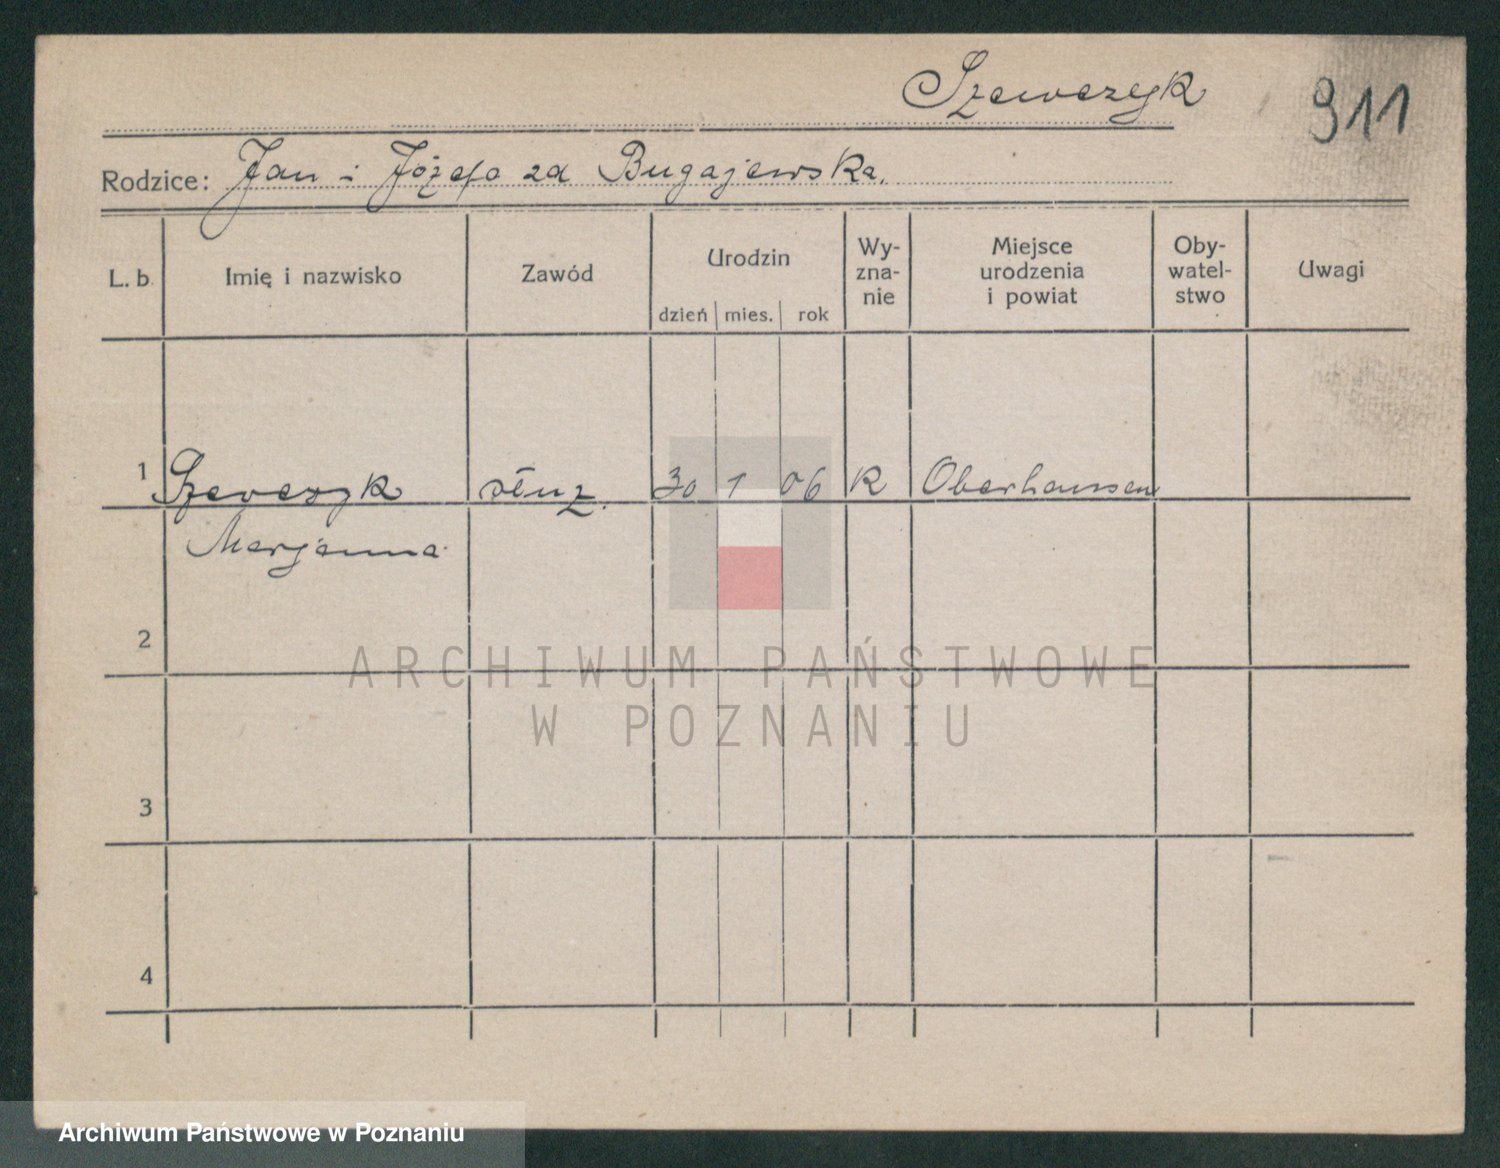 Szewczyk
911
Rodzice: Jan i Józefa zd Bugajewska.
L. b. Imię i nazwisko Zawód Urodzin dzień mies. rok Wy- zna- nie Miejsce urodzenia i powiat Oby- watel- stwo Uwagi
1 Szewczyk służ. 30 1 06 R Oberhausen
Marjanna
2
3
4
ARCHIWUM PAŃSTWOWE
W POZNANIU
Archiwum Państwowe w Poznaniu